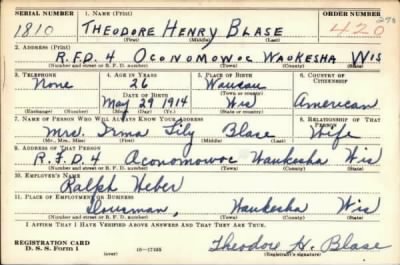 SERIAL NUMBER 1. NAME (Print) ORDER NUMBER
1810 THEODORE HENRY BLASE 420
(First) (Middle) (Last)
2. ADDRESS (Print)
R.F.D. 4 Oconomowoc Waukesha Wis
(Number and street or R. F. D. number) (Town) (County) (State)
3. TELEPHONE 4. AGE IN YEARS 5. PLACE OF BIRTH 6. COUNTRY OF CITIZENSHIP
None 26 Wausau
DATE OF BIRTH (Town or county)
May 29 1914 Wis American
(Exchange) (Number) (Mo.) (Day) (Yr.) (State or country)
7. NAME OF PERSON WHO WILL ALWAYS KNOW YOUR ADDRESS 8. RELATIONSHIP OF THAT PERSON
Mrs. Irma Lily Blase Wife
(Mr., Mrs., Miss) (First) (Middle) (Last)
9. ADDRESS OF THAT PERSON
R.F.D. 4 Oconomowoc Waukesha Wis
(Number and street or R. F. D. number) (Town) (County) (State)
10. EMPLOYER'S NAME
Ralph Weber
11. PLACE OF EMPLOYMENT OR BUSINESS
Dousman, Waukesha Wis
(Number and street or R. F. D. number) (Town) (County) (State)
I AFFIRM THAT I HAVE VERIFIED ABOVE ANSWERS AND THAT THEY ARE TRUE.
REGISTRATION CARD
D. S. S. Form 1 (over) 16—17105 Theodore H. Blase
(Registrant's signature)